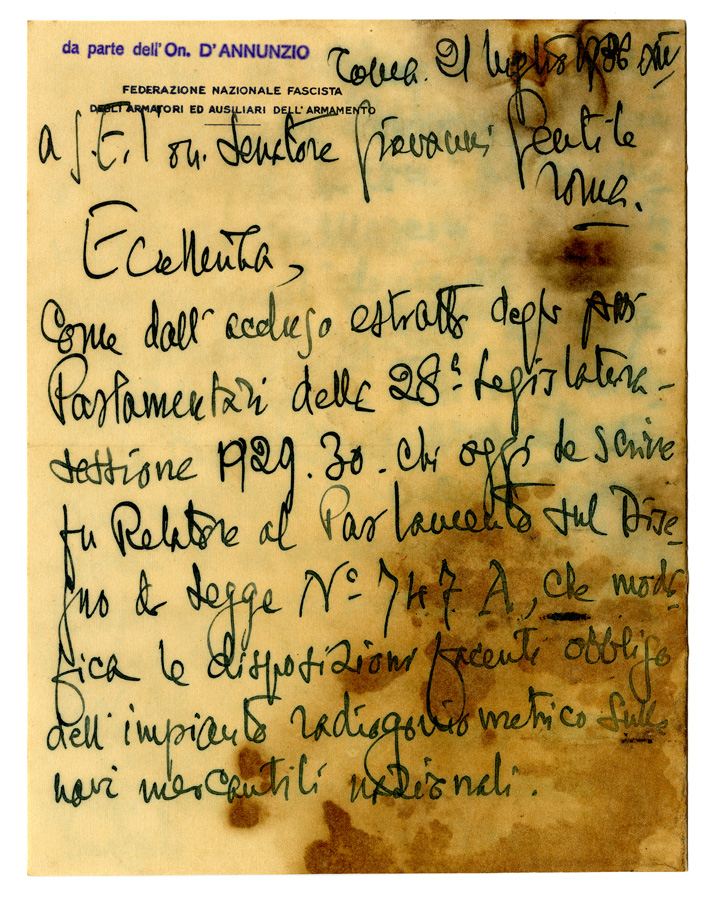 da parte dell'On. D'ANNUNZIO
Roma. 21 luglio 1936 XIV
FEDERAZIONE NAZIONALE FASCISTA
DEGLI ARMATORI ED AUSILIARI DELL'ARMAMENTO
a S.E. l'on. Senatore Giovanni Gentile
Roma.
Eccellenza,
Come dall'accluso estratto degli Atti
Parlamentari della 28ª Legislatura -
sessione 1929.30 - chi oggi Le scrive
fu Relatore al Parlamento sul Dise-
gno di Legge Nº 747 A, che modi-
fica le disposizioni facenti obbligo
dell'impianto radiogoniometrico sulle
navi mercantili nazionali.